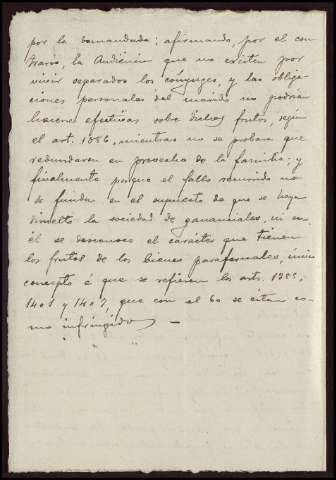 por la demandada; afirmando, por el con
trario, la Audiencia que no existen por
vivir separados los cónyuges, y las obliga-
ciones personales del marido no podrán
hacerse efectivas sobre dichos frutos, según
el art. 1386, mientras no se probara que
redundaron en provecho de la familia; y
finalmente porque el fallo recurrido no
se funda en el supuesto de que se haya
disuelto la sociedad de gananciales, ni en
él se desconoce el carácter que tienen
los frutos de los bienes parafernales, único
concepto á que se refieren los arts. 1385,
1401 y 1407, que con el 60 se citan co-
mo infringidos